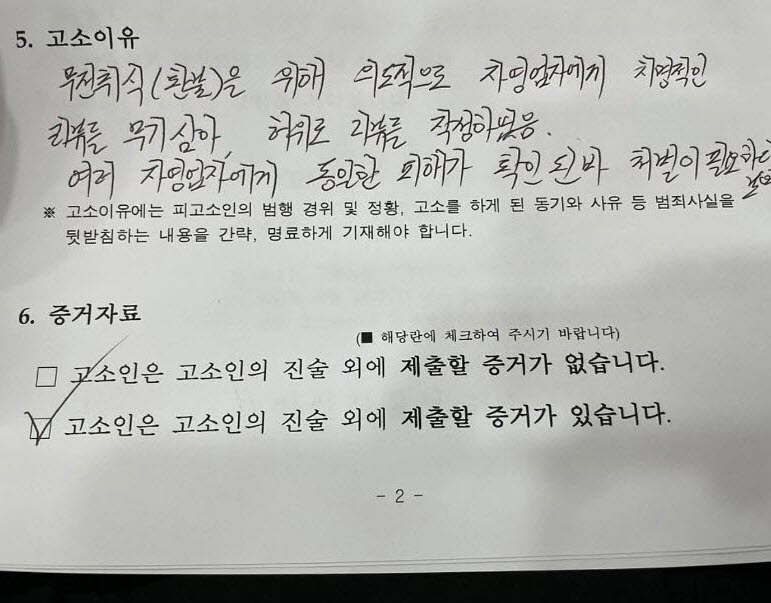 5. 고소이유
무전취식(환불)을 위해 의도적으로 자영업자에게 치명적인
리뷰를 무기삼아, 허위로 리뷰를 작성하였음.
여러 자영업자에게 동일한 피해가 확인된바 처벌이 필요하다
※ 고소이유에는 피고소인의 범행 경위 및 정황, 고소를 하게 된 동기와 사유 등 범죄사실을
뒷받침하는 내용을 간략, 명료하게 기재해야 합니다.
6. 증거자료
(■ 해당란에 체크하여 주시기 바랍니다)
□ 고소인은 고소인의 진술 외에 제출할 증거가 없습니다.
☑ 고소인은 고소인의 진술 외에 제출할 증거가 있습니다.
- 2 -